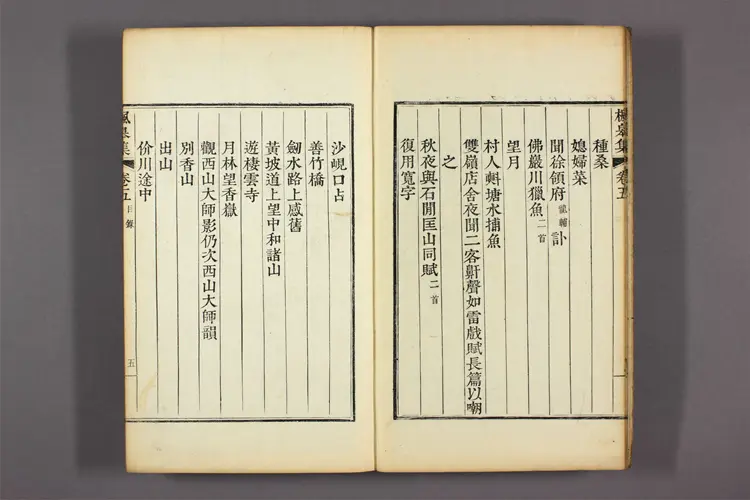 楓皐集 卷五
種桑
媳婦菜
聞徐領府龍輔訃
佛巖川獵魚二首
望月
村人㪺塘水捕魚
雙嶺店舍夜聞二客鼾聲如雷戲賦長篇以嘲
之
秋夜與石閒匡山同賦二首
復用寬字
沙峴口占
善竹橋
劒水路上感舊
黃坡道上望中和諸山
遊棲雲寺
月林望香嶽
觀西山大師影仍次西山大師韻
別香山
出山
价川途中
楓皐集 卷之五 目錄 五